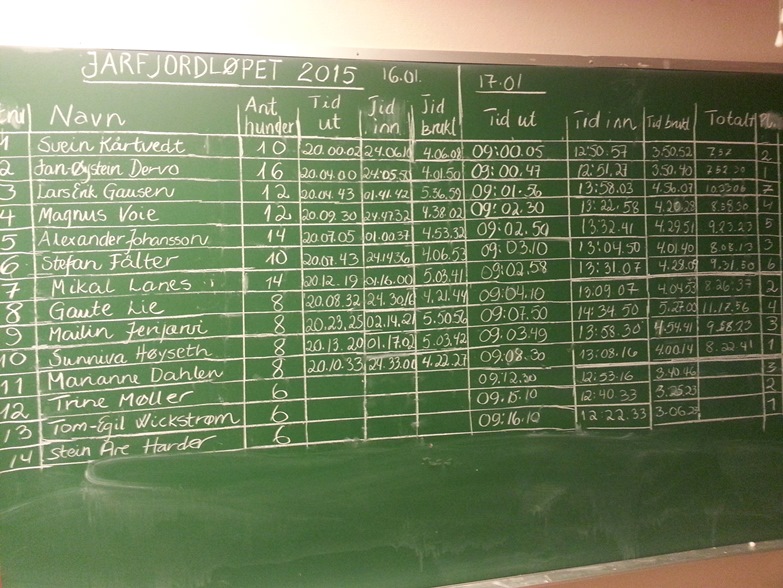 JARFJORDLØPET 2015 16.01. 17.01
Navn Ant hunder Tid ut Tid inn Tid brukt Tid ut Tid inn Tid brukt Totalt Pl.
1 Svein Kårtvedt 10 20.00.02 24.06.10 4.06.08 09:00.05 12:50.57 3.50.52 2
2 Jan-Øystein Dervo 16 20.04.00 24.05.50 4.01.50 09:00.47 12:51.27 3.50.40 7.52.30 1
3 Lars Erik Gausen 12 20.04.43 01.41.42 5.36.59 09:01.56 13:58.03 4.56.07 10.33.06 7
4 Magnus Voie 12 20.09.30 24.47.32 4.38.02 09:02.30 13:22.58 4.20.28 8.58.30 4
5 Alexander Johansson 14 20.07.05 01.00.37 4.53.32 09:02.50 13:32.41 4.29.51 9.23.23 5
6 Stefan Fälter 10 20.07.43 24.14.36 4.06.53 09:03.10 13:04.50 4.01.40 8.08.13 3
7 Mikal Lanes 14 20.12.19 01.16.00 5.03.41 09:02.58 13:31.07 4.28.09 9.31.50 6
8 Gaute Lie 8 20.08.32 24.30.16 4.21.44 09:04.10 13:09.07 4.04.53 8.26.37 2
9 Mailin 8 20.23.25 02.14.21 5.50.56 09:07.50 14:34.50 5.27.00 11.17.56
10 Sunniva Høyseth 8 20.13.20 01.17.02 5.03.42 09:03.49 13:58.30 4.54.41 9.58.23 3
11 Marianne Dahlen 8 20.10.33 24.33.00 4.22.27 09:08.30 13:08.16 4.00.14 8.22.41 1
12 Trine Møller 6 09:12.30 12:53.16 3.40.46 3
13 Tom-Egil Wickstrøm 6 09:15.10 12:40.33 3.25.23 2
14 Stein Are Harder 6 09:16.10 12:22.33 3.06.23 1